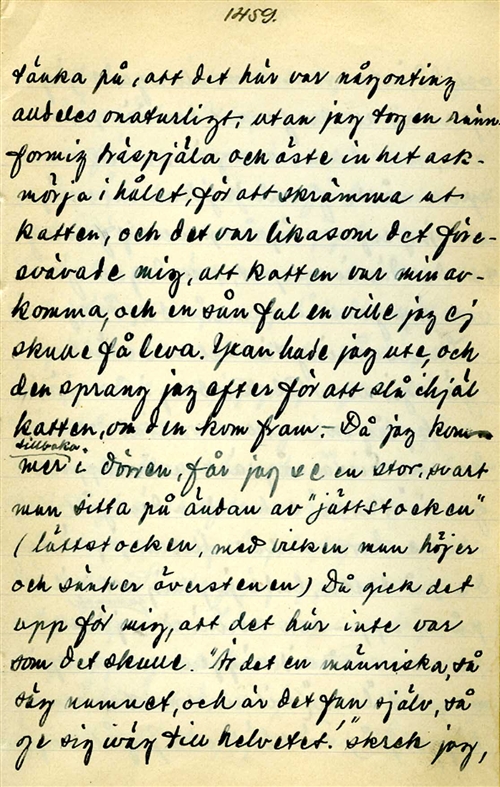 1459.
tänka på, att det här var någonting
alldeles onaturligt, utan jag tog en ränn-
formig träspjäla och öste in het ask-
mörja i hålet, för att skrämma ut
katten, och det var likasom det före-
svävade mig, att katten var min av-
komma, och en sån ful en ville jag ej
skulle få leva. Yxan hade jag ute, och
den sprang jag efter för att slå ihjäl
katten, om den kom fram. – Då jag kom-
mer tillbaka i dörren, får jag se en stor, svart
man sitta på ändan av "jättstocken"
(lättstocken, med vilken man höjer
och sänker överstenen) Då gick det
upp för mig, att det här inte var
som det skulle. "Är det en människa, så
säg namnet, och är det fan själv, så
ge sig iväg till helvetet!" skrek jag,